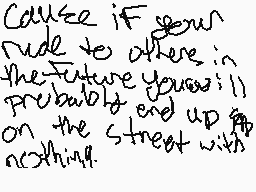 Cause if your
rude to others in
the future you will
probably end up
on the street with
nothing.